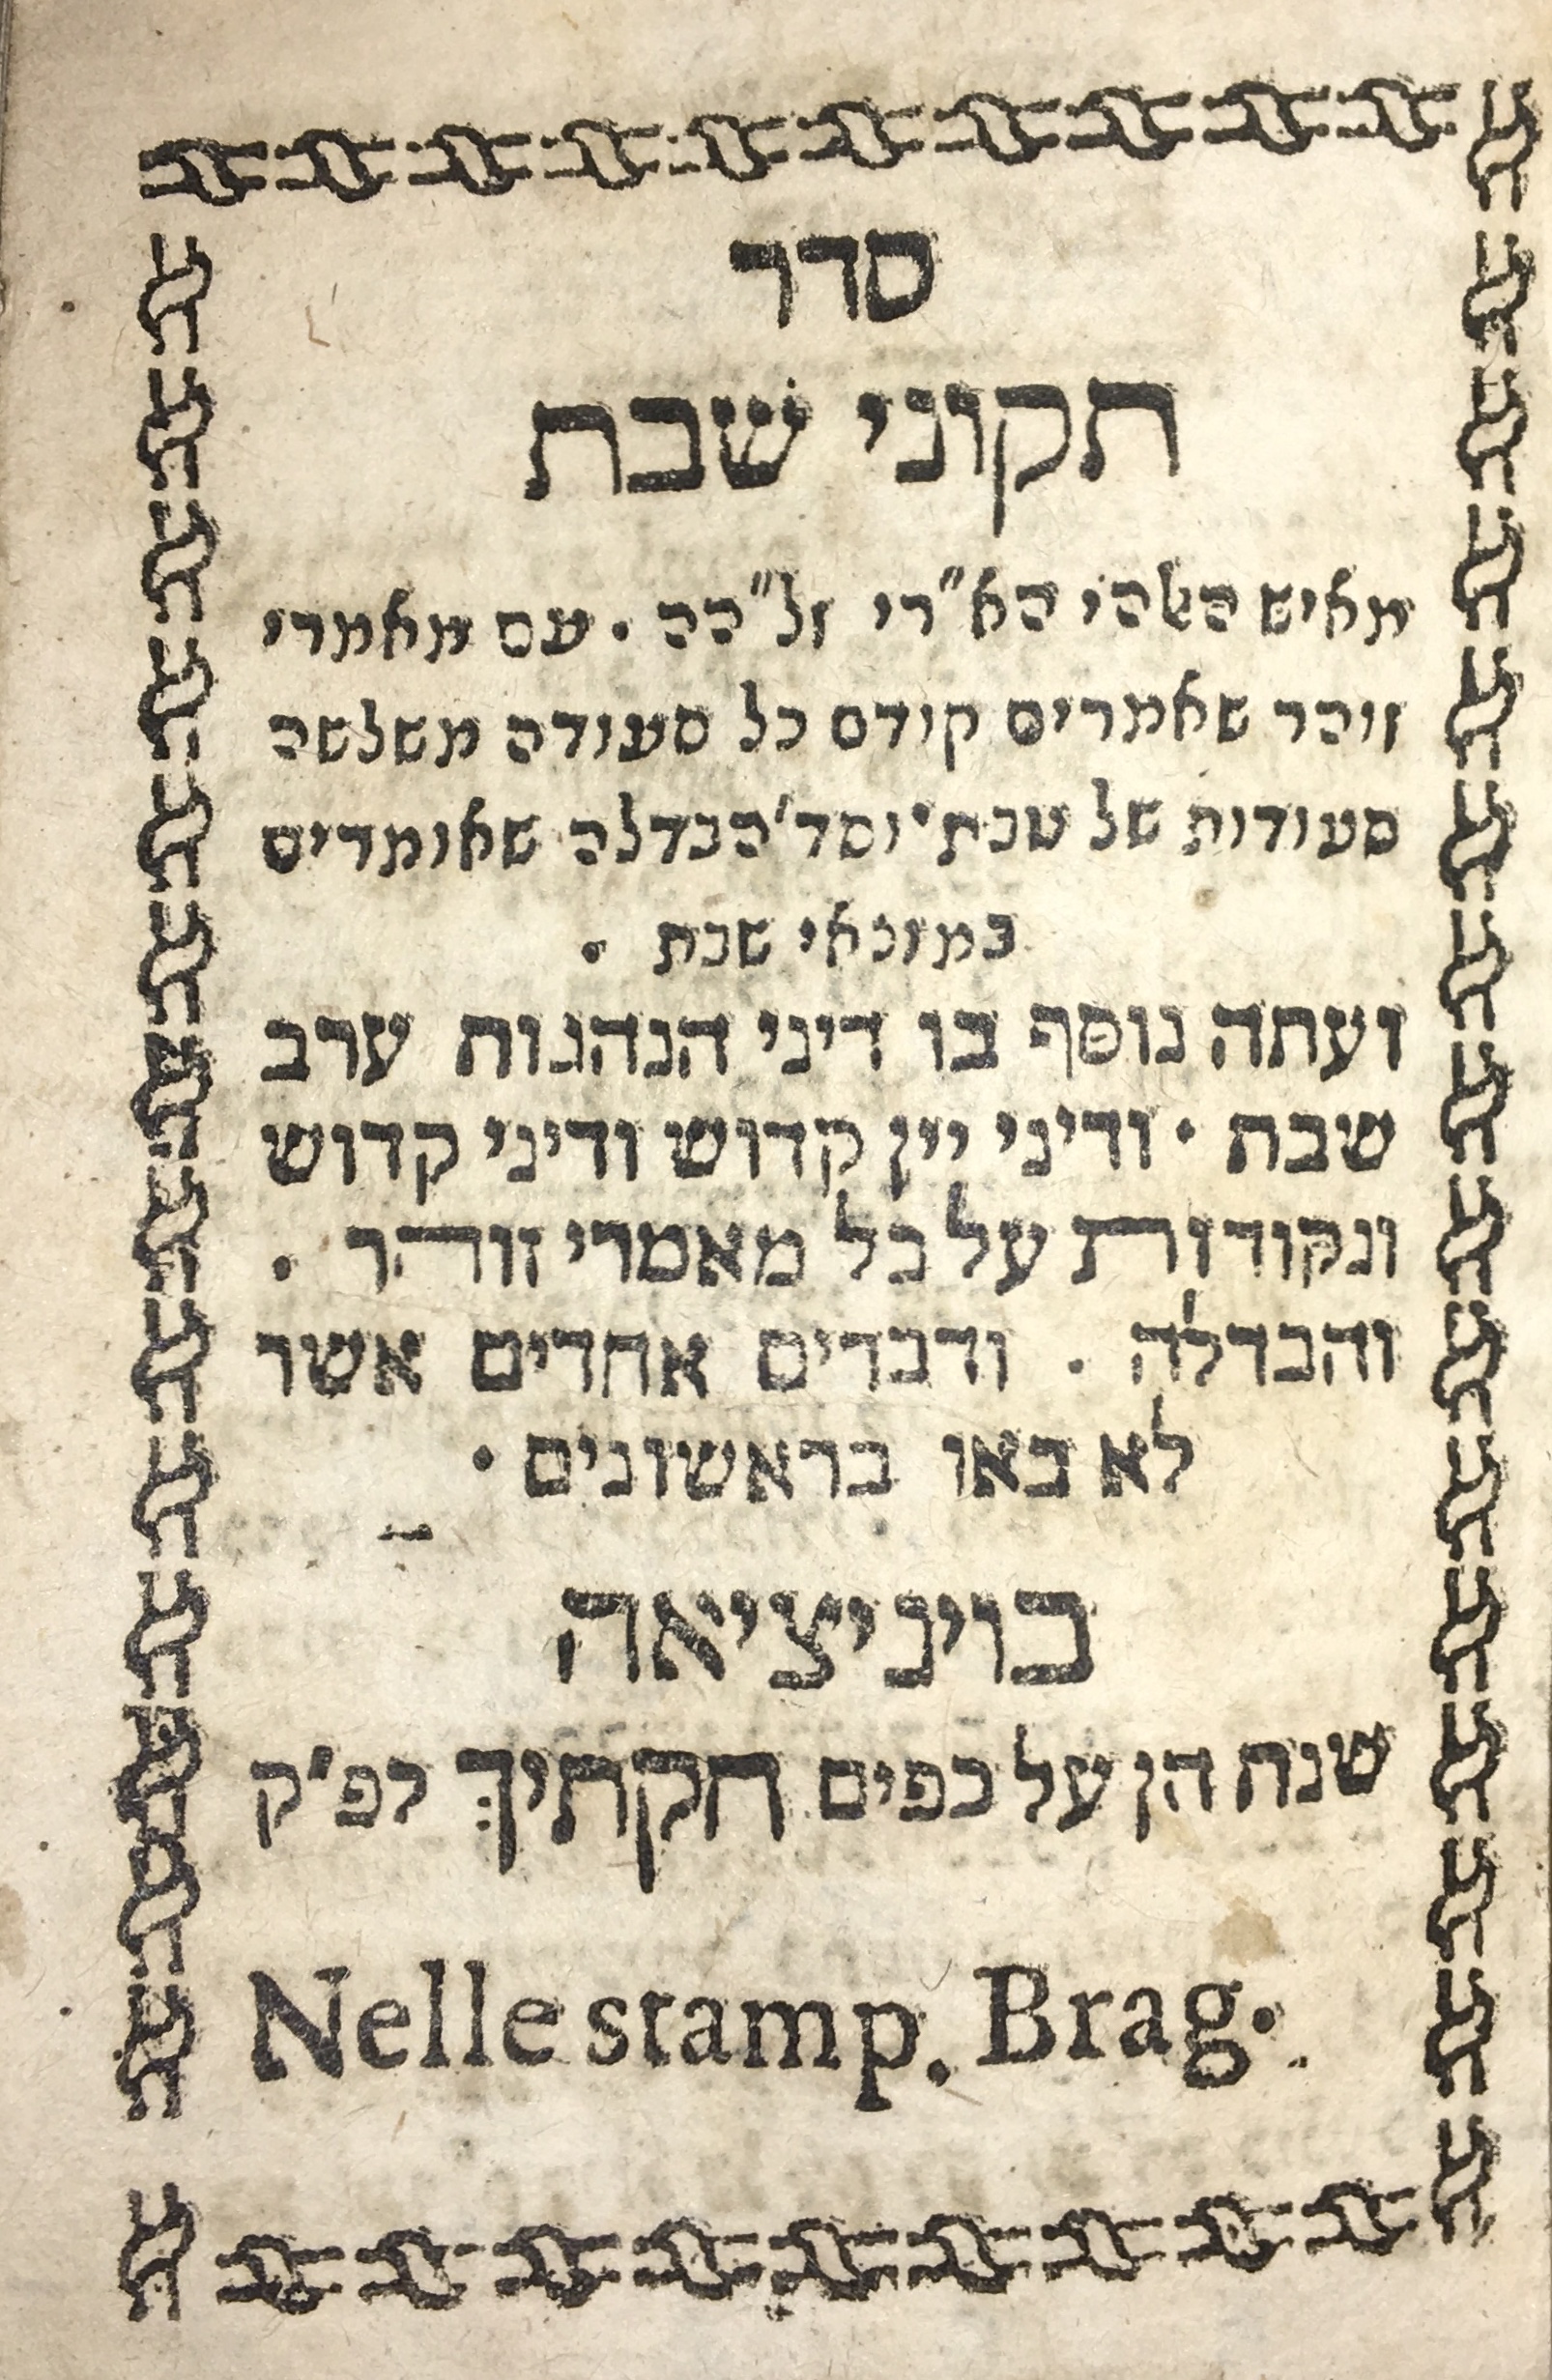 סדר
תקוני שבת
מאיש האלהי הא"רי זל"הה · עם מאמרי
זוהר שאמרים קודם כל סעודה משלשה
סעודות של שבת · וסד' הבדלה שאומרים
במוצאי שבת ·
ועתה נוסף בו דיני הנהגות ערב
שבת · ודיני יין קדוש ודיני קדוש
ונקודות על כל מאמרי זוהר ·
והבדלה · ודברים אחרים אשר
לא באו בראשונים ·
בויניציאה
שנת הן על כפים חקתיך לפ'ק
Nelle stamp. Brag.